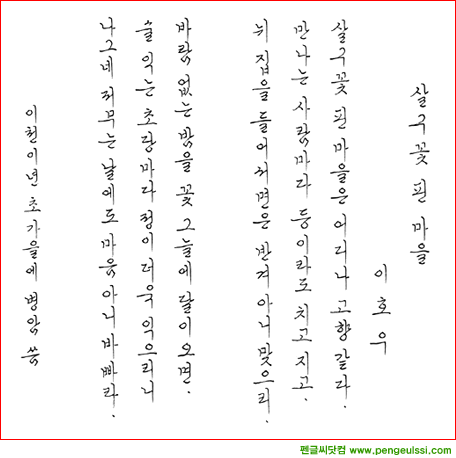 살구꽃 핀 마을
이호우
살구꽃 핀 마을은 어디나 고향 같다.
만나는 사람마다 등이라도 치고 지고.
뉘 집을 들어서면은 반겨 아니 맞으리.
바람 없는 밤을 꽃 그늘에 달이 오면.
술 익는 초당마다 정이 더욱 익으리니
나그네 저무는 날에도 마음 아니 바빠라.
이천이년 초가을에 병암 씀
펜글씨닷컴 www.pengeulssi.com